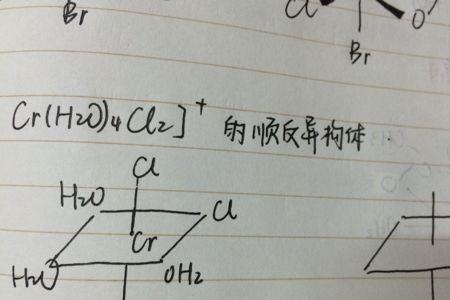 Br
Cl
O
Br
Cr(H2O)4Cl2]+ 的顺反异构体
Cl
H2O
Cl
Cr
H2O
OH2